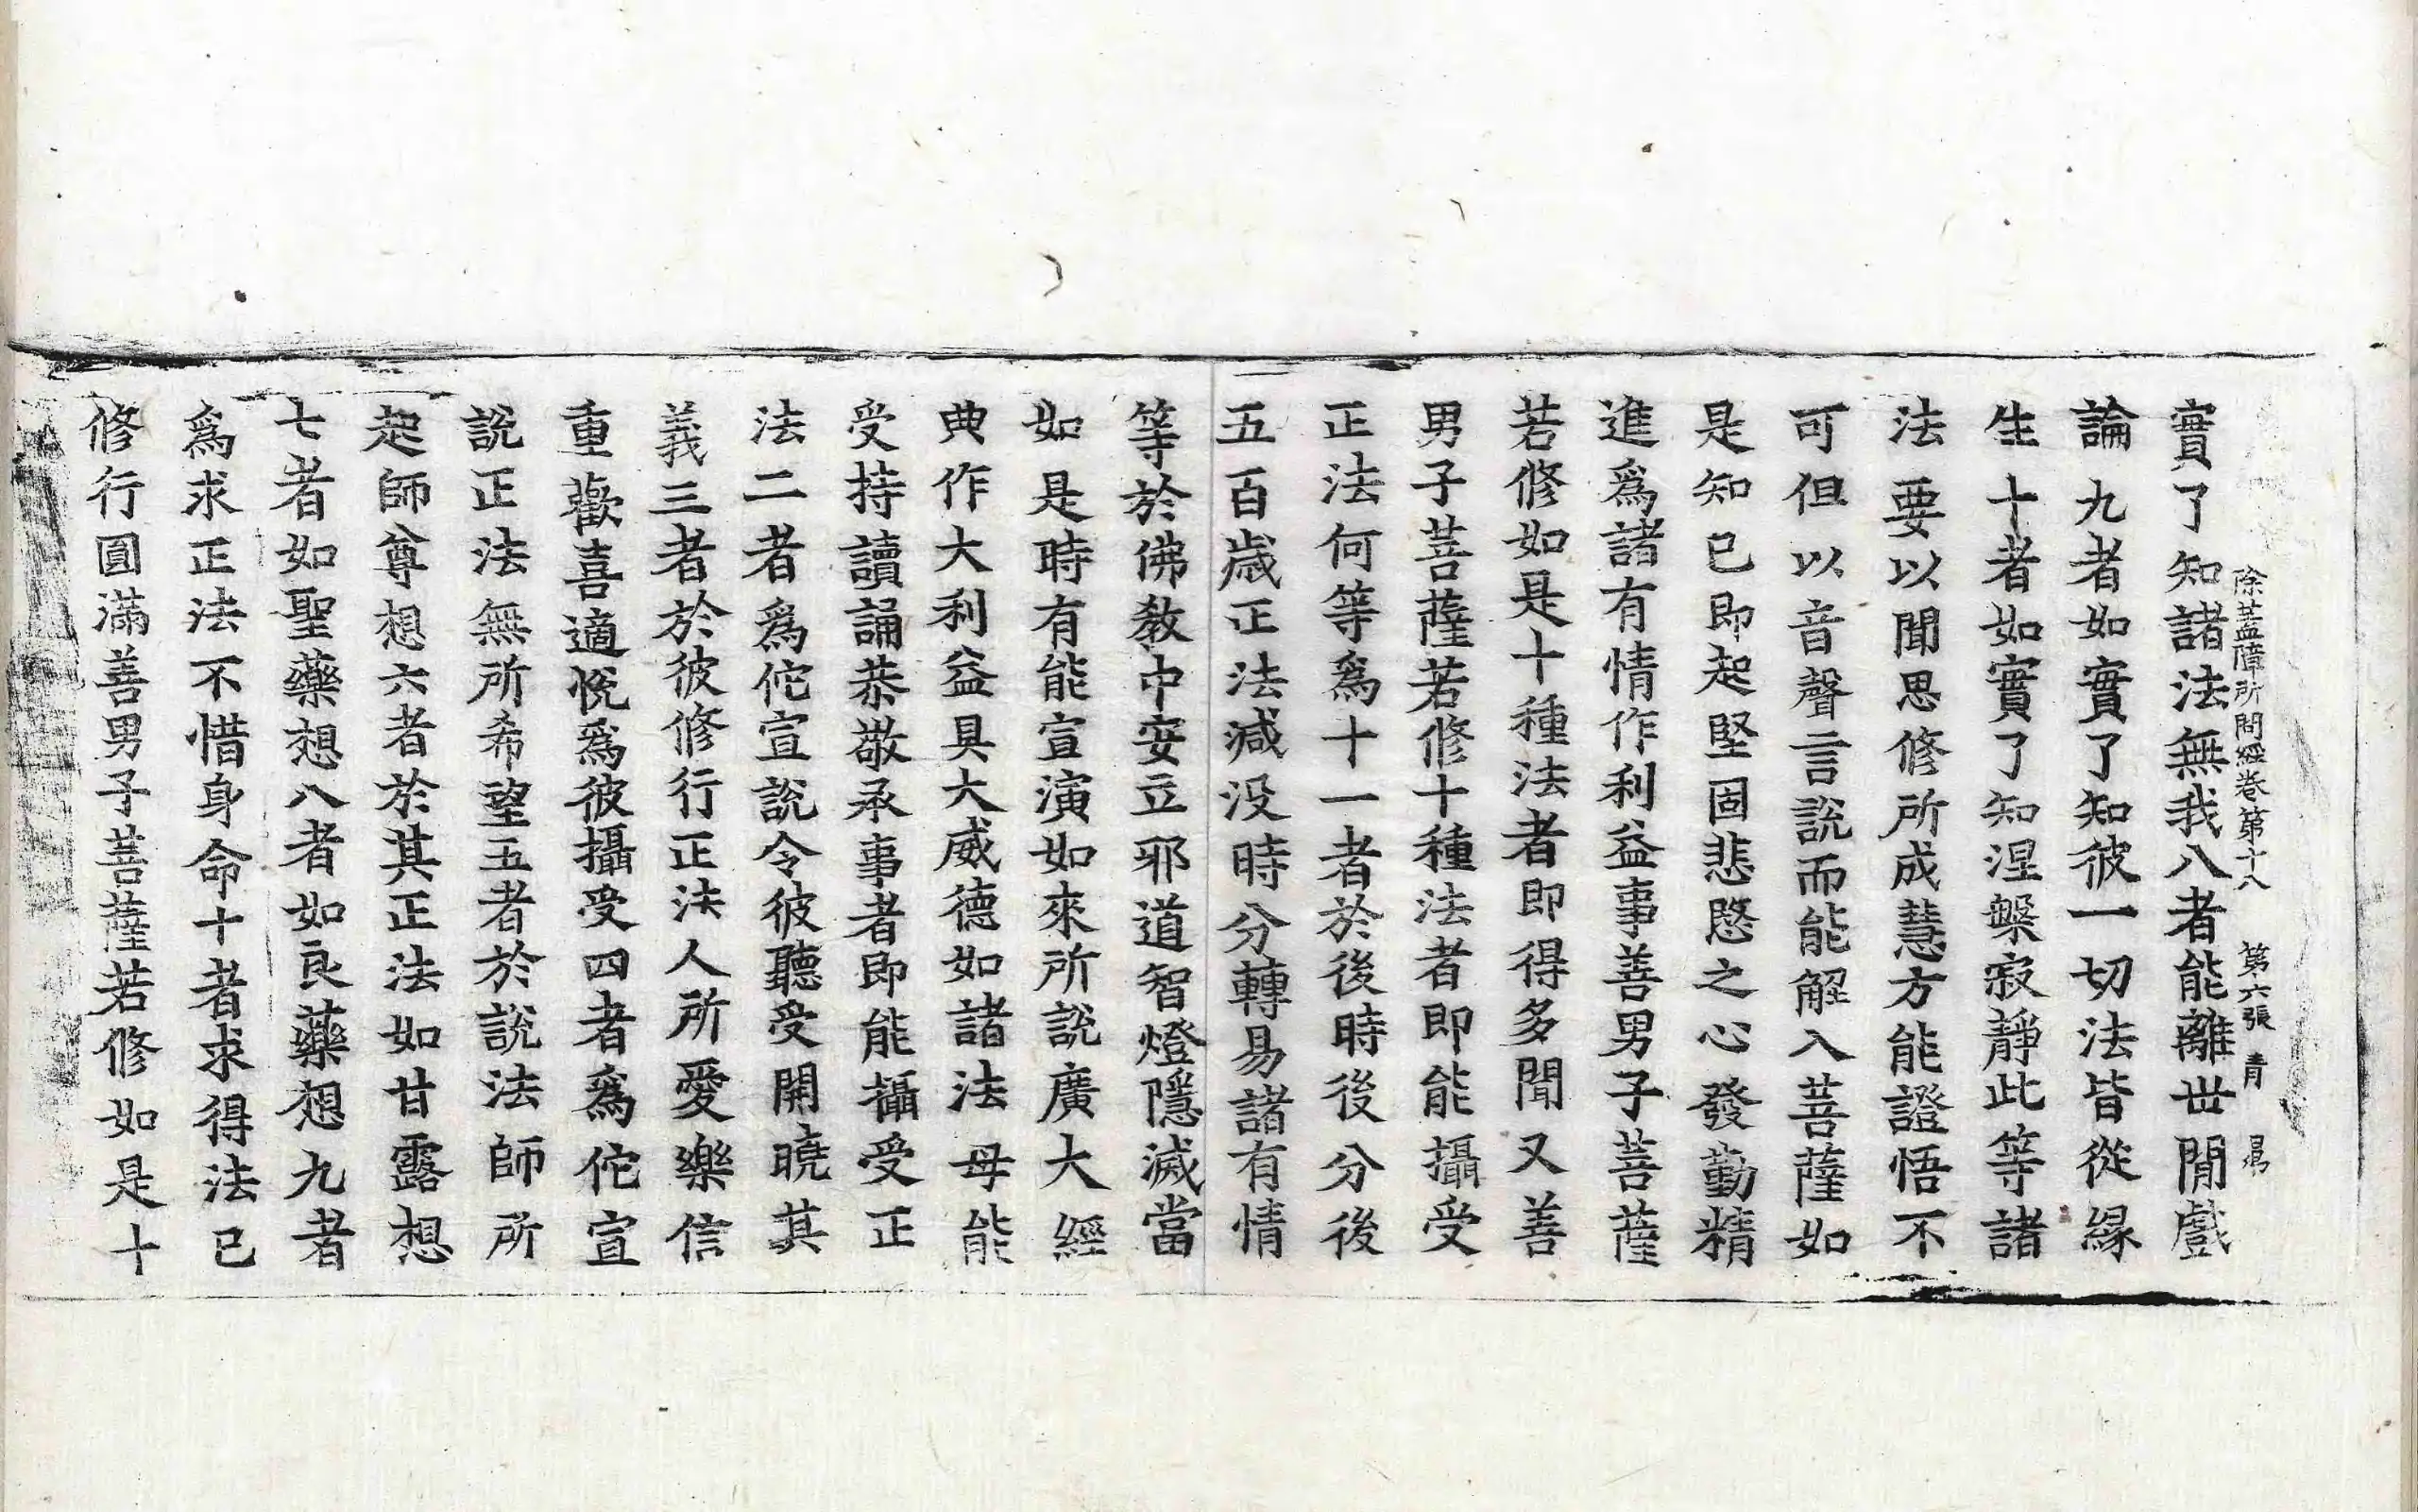 除蓋障所問經卷第十八 第六張 青
實了知諸法無我八者能離世閒戲
論九者如實了知彼一切法皆從緣
生十者如實了知涅槃寂靜此等諸
法要以聞思修所成慧方能證悟不
可但以音聲言說而能解入菩薩如
是知已即起堅固悲愍之心發勤精
進爲諸有情作利益事善男子菩薩
若修如是十種法者即得多聞又善
男子菩薩若修十種法者即能攝受
正法何等爲十一者於後時後分後
五百歲正法減没時分轉易諸有情
等於佛教中安立邪道智燈隱滅當
如是時有能宣演如來所說廣大經
典作大利益具大威德如諸法母能
受持讀誦恭敬承事者即能攝受正
法二者爲佗宣說令彼聽受開曉其
義三者於彼修行正法人所愛樂信
重歡喜適悅爲彼攝受四者爲佗宣
說正法無所希望五者於說法師所
起師尊想六者於其正法如甘露想
七者如聖藥想八者如良藥想九者
爲求正法不惜身命十者求得法已
修行圓滿善男子菩薩若修如是十